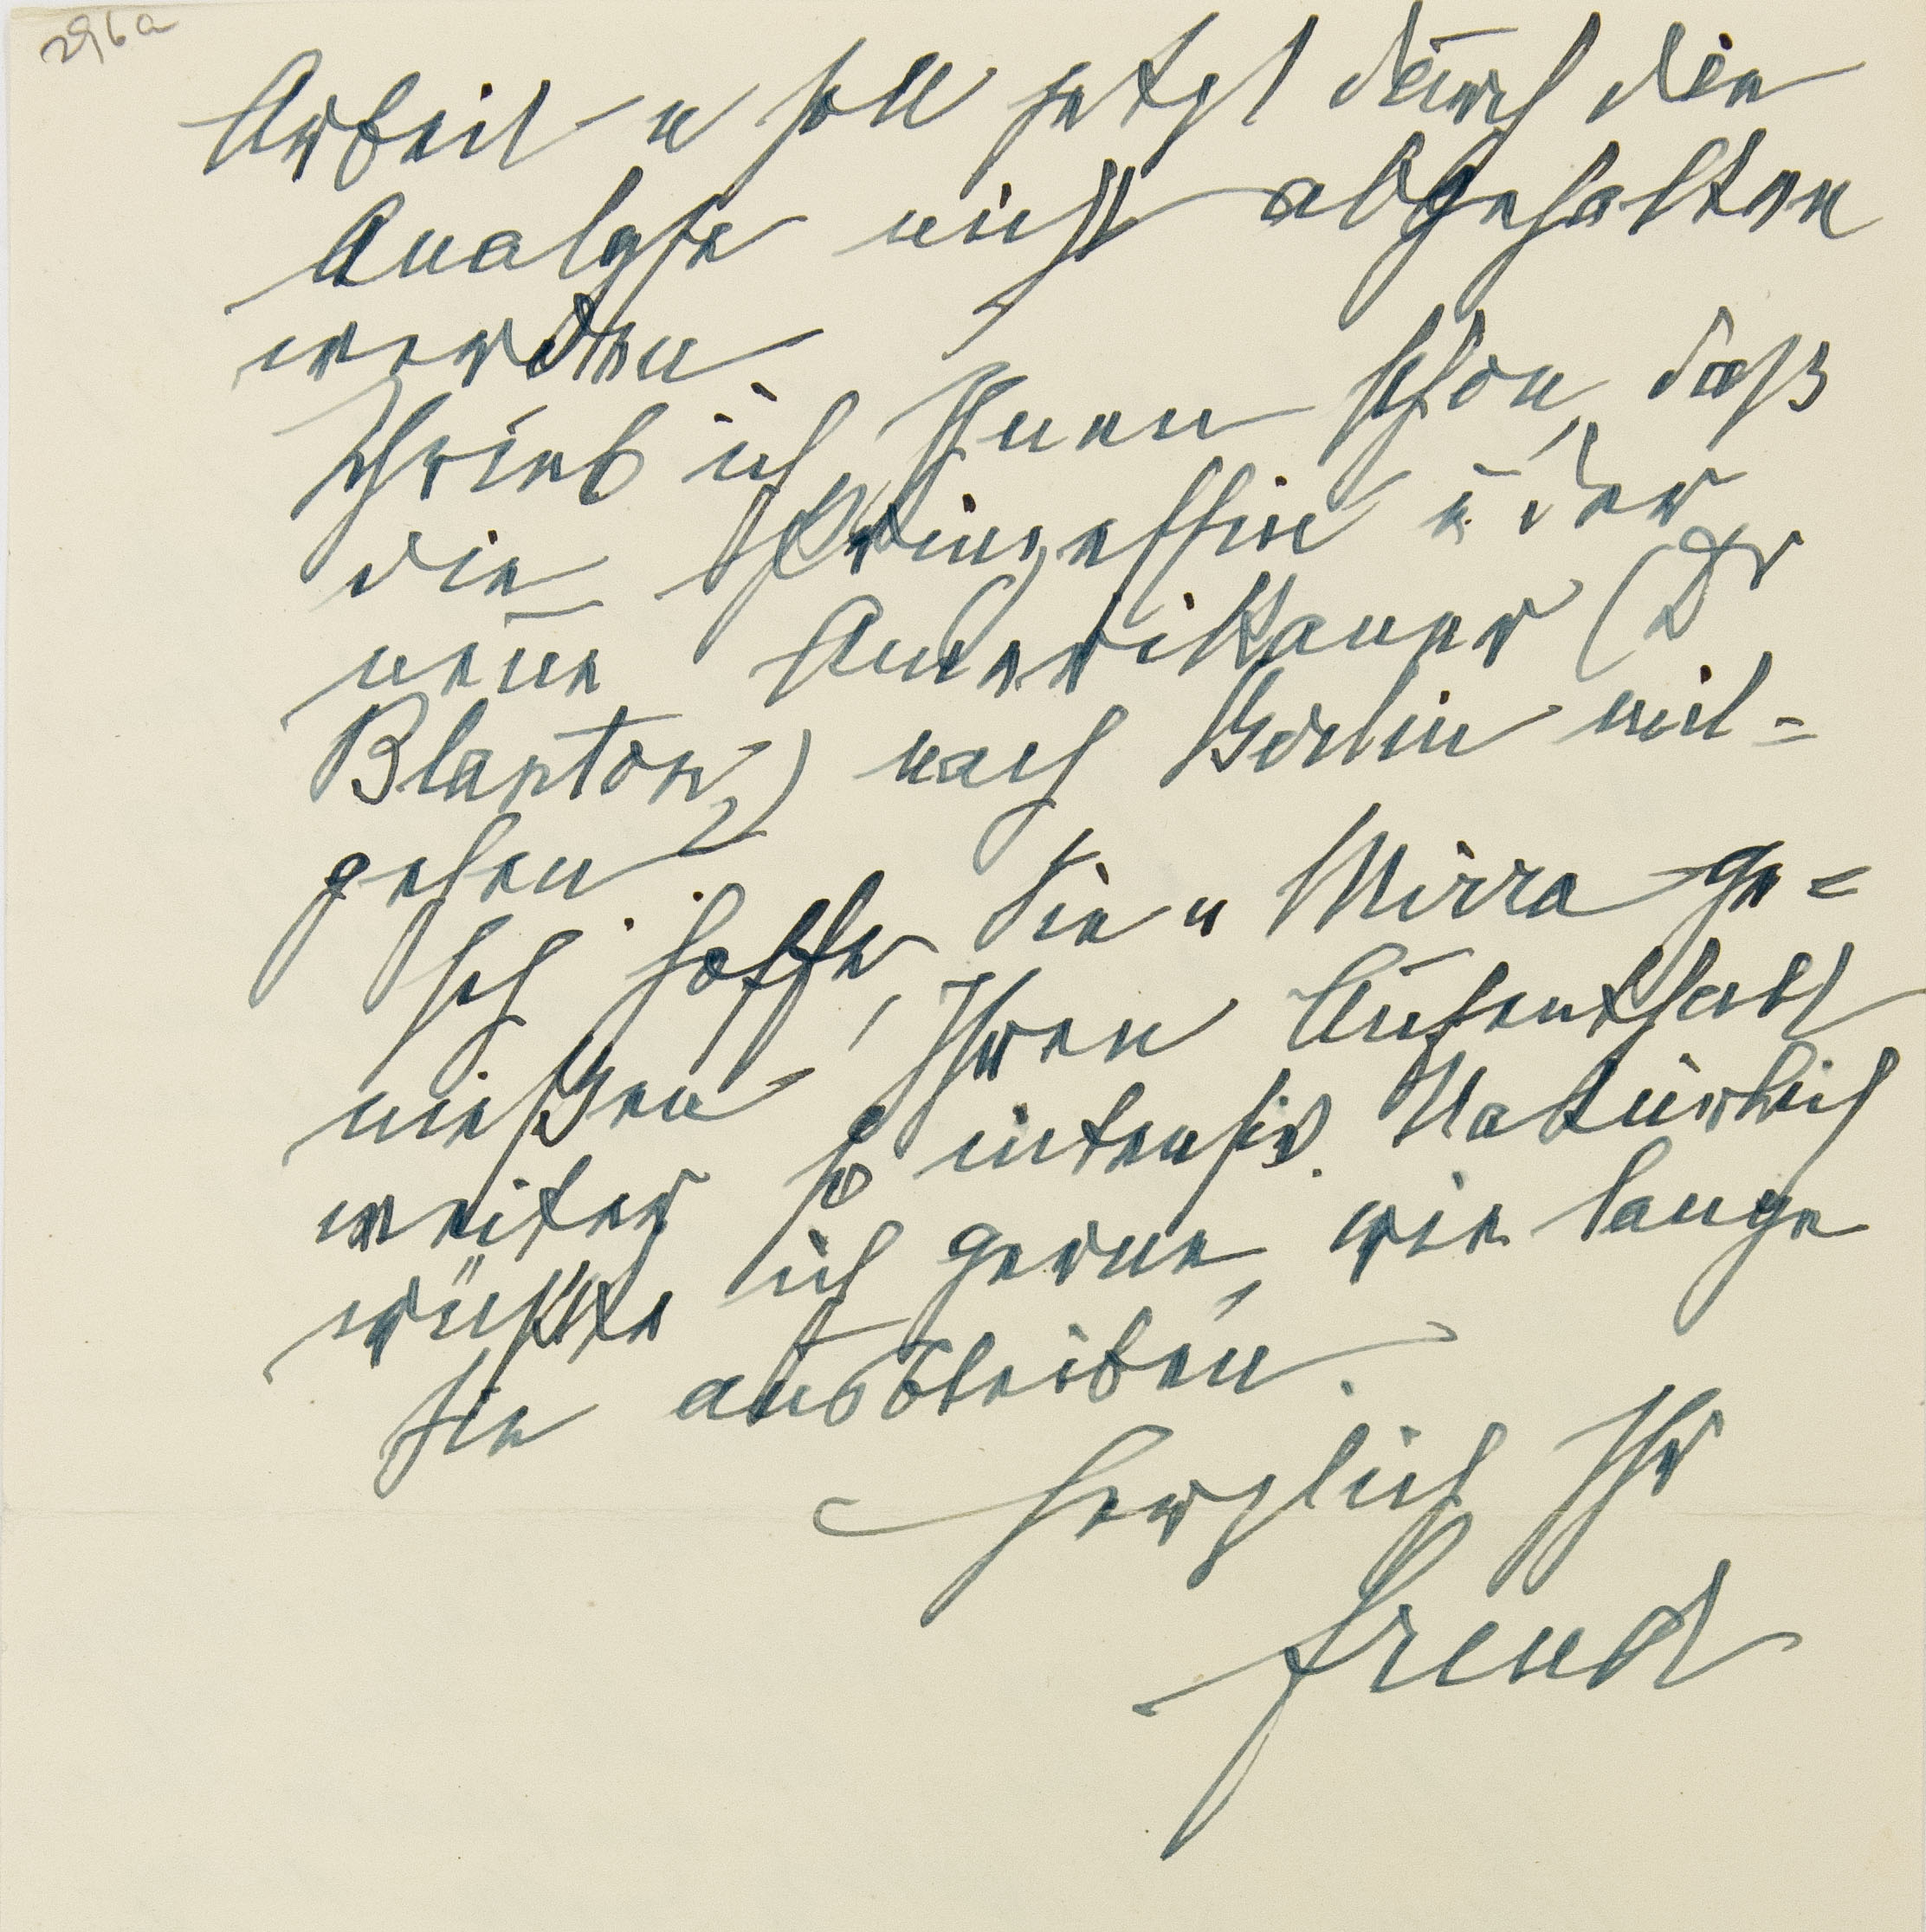 296a
Arbeit u soll jetzt durch die
Analyse nicht abgehalten
werden.
Schrieb ich Ihnen schon, daß
die Prinzessin u der
neue Amerikaner (Dr
Blanton) nach Berlin mit=
gehen?
Ich hoffe, Sie u Mirra ge=
nießen Ihren Aufenthalt
weiter so intensiv. Natürlich
wüßte ich gerne, wie lange
Sie ausbleiben.
Herzlich Ihr
Freud